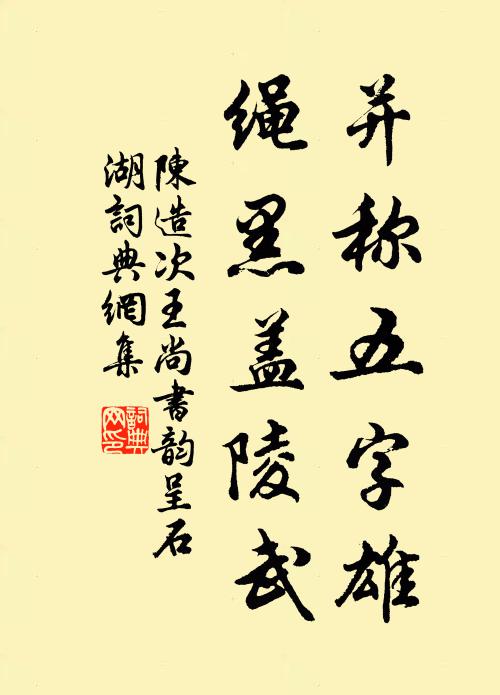 并称五字雄
绳黑盖陵武
陳造次王尚書韵呈石
湖詞典網集
詞典
网印